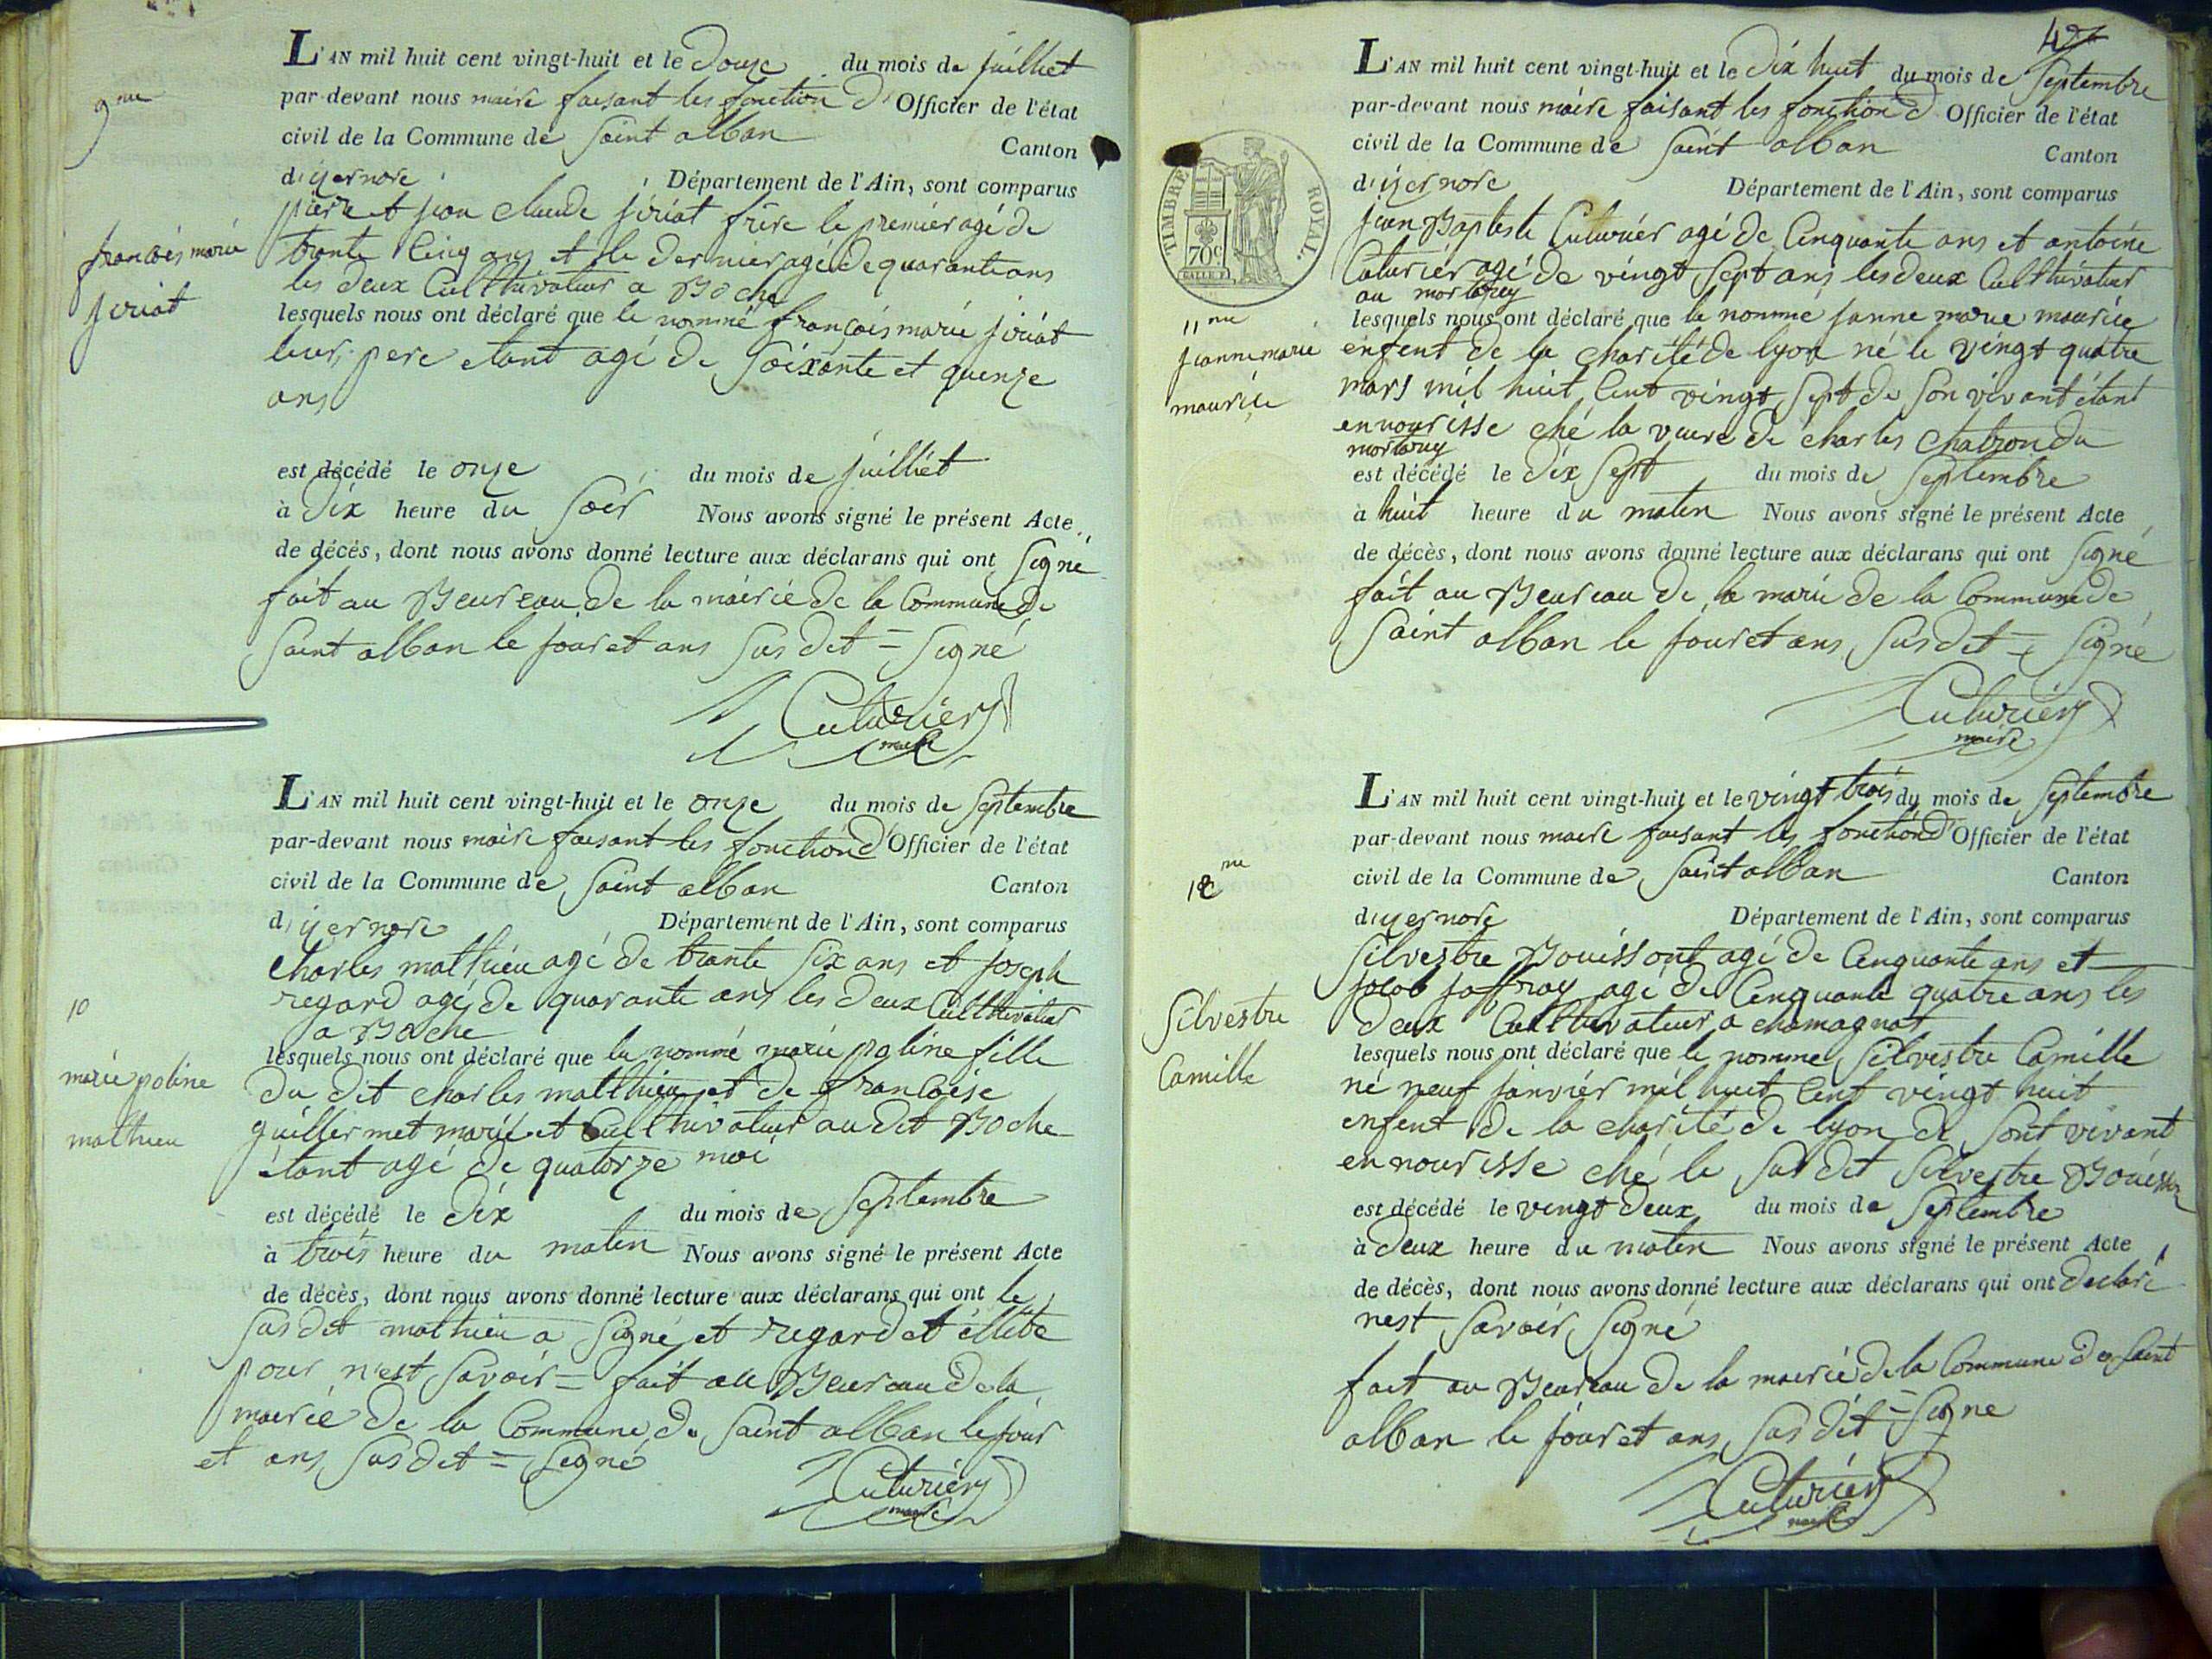 9me
françois marie
jiriat
L'AN mil huit cent vingt-huit et le Douze du mois de juilliet
par-devant nous maire faisant les fonction d'Officier de l'état
civil de la Commune de Saint alban Canton
d'izernore Département de l'Ain, sont comparus
pierre et jean claude jiriat frère le premier agé de
trante Cinq ans et le Dernier agé de quarante ans
les deux Culthivateur a Boche
lesquels nous ont déclaré que le nommé françois marie jiriat
leur pere etant agé de Soixante et quenze
ans
est décédé le onze du mois de juilliet
à Dix heure du Soir Nous avons signé le présent Acte
de décès, dont nous avons donné lecture aux déclarans qui ont Signé
fait au Beureau de la mairie de la Commune de
Saint alban le jour et ans Sus dit = Signé
Cuturier
maire
10
marie poline
mathieu
L'AN mil huit cent vingt-huit et le onze du mois de Septembre
par-devant nous maire faisant les fonction d'Officier de l'état
civil de la Commune de Saint alban Canton
d'izernore Département de l'Ain, sont comparus
Charles mathieu agé de trante Six ans et joseph
regard agé de quarante ans les deux Culthivateur
a Boche
lesquels nous ont déclaré que la nommé marie poline fille
du dit charles matthieu et de francoise
guillermet marié et Culthivateur au dit Boche
étant agé de quatorze moi
est décédé le Dix du mois de Septembre
à trois heure du matin Nous avons signé le présent Acte
de décès, dont nous avons donné lecture aux déclarans qui ont le
Sus dit mathieu a Signé et regard et illité
pour n'est Savoir = fait au Beureau de la
mairie de la Commune de Saint alban le jour
et ans Sus dit = Signé
Cuturier
maire
42
TIMBRE ROYAL.
70c
11me
jeanne marie
maurice
L'AN mil huit cent vingt-huit et le Dix huit du mois de Septembre
par-devant nous maire faisant les fonction d'Officier de l'état
civil de la Commune de Saint alban Canton
d'izernore Département de l'Ain, sont comparus
jean Baptiste Cuturier agé de Cinquante ans et antoine
Cuturier agé de vingt Sept ans les deux Culthivateur
au mortarey
lesquels nous ont déclaré que la nommé janne marie maurice
enfent de la charité de lyon né le vingt quatre
mars mil huit Cent vingt Sept de Son vivant étant
en nourisse ché la veuve de charles chatron du
mortarey
est décédé le Dix Sept du mois de Septembre
à huit heure du matin Nous avons signé le présent Acte
de décès, dont nous avons donné lecture aux déclarans qui ont Signé
fait au Beureau de la marie de la Commune de
Saint alban le jour et ans Sus dit = Signé
Cuturier
maire
12me
Silvestre
Camille
L'AN mil huit cent vingt-huit et le vingt trois du mois de Septembre
par-devant nous maire faisant les fonction d'Officier de l'état
civil de la Commune de Saint alban Canton
d'izernore Département de l'Ain, sont comparus
Silvestre Bouissont agé de Cinquante ans et
jacob joffray agé de Cinquante quatre ans les
deux Culthivateur a chamagnat
lesquels nous ont déclaré que le nommé Silvestre Camille
né neuf janvier mil huit Cent vingt huit
enfent de la charité de lyon de Sont vivant
en nourisse ché le Sus dit Silvestre Bouisson
est décédé le vingt Deux du mois de Septembre
à Deux heure du matin Nous avons signé le présent Acte
de décès, dont nous avons donné lecture aux déclarans qui ont déclaré
nest Savoir Signé
fait au Beureau de la mairie de la Commune de Saint
alban le jour et ans Sus dit = Signé
Cuturier
maire